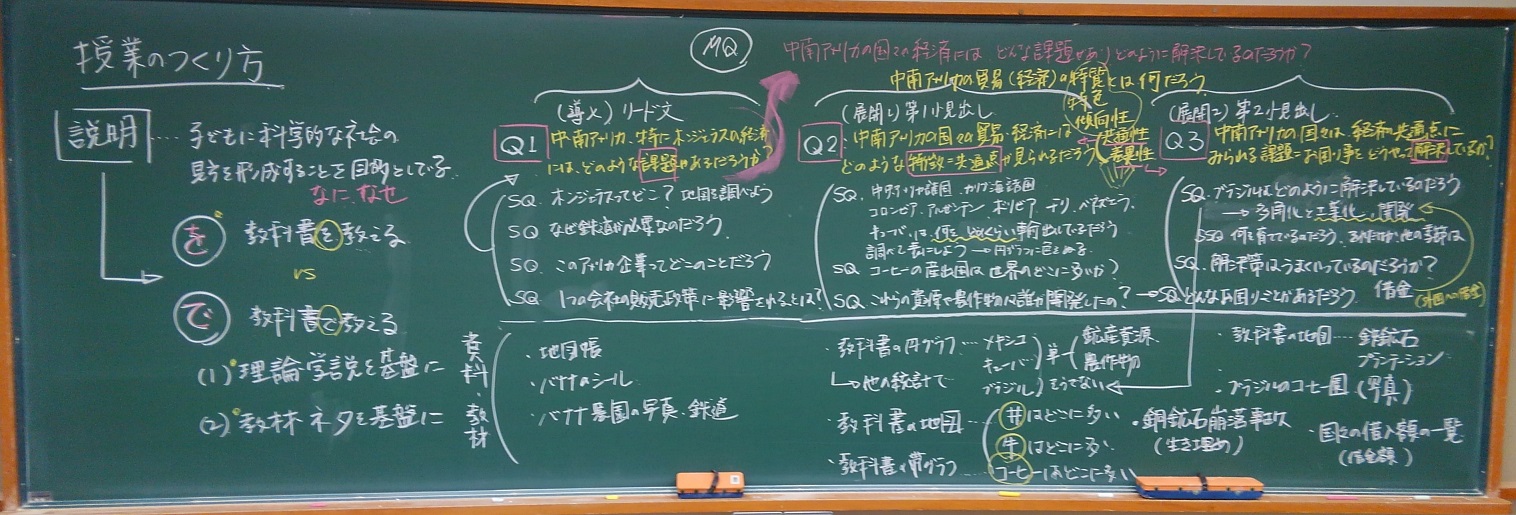 授業のつくり方
説明 … 子どもに科学的な社会の
見方を形成することを目的としている
なに、なぜ
を 教科書を教える
vs
で 教科書で教える
(1) 理論学説を基盤に
(2) 教材・ネタを基盤に
MQ 中南アメリカの国々の経済には どんな課題がありどのように解決しているのだろうか?
中南アメリカの貿易(経済)の特質とは何だろう
特色
傾向性
共通性
差異性
(導入) リード文
Q1 中南アメリカ、特にホンジュラスの経済
には、どのような課題があるだろうか?
SQ. ホンジュラスってどこ? 地図を調べよう
SQ なぜ鉄道が必要なのだろう
SQ. このアメリカ企業ってどこのことだろう
SQ 1つの会社の販売政策に影響されるとは?
(展開1) 第1小見出し
Q2 中南アメリカの国々の貿易・経済には
どのような特徴=共通点が見られるだろう
SQ. 中央アメリカ諸国 カリブ海諸国
コロンビア、アルゼンチン ボリビア チリ ベネズエラ、
キューバは、何をどのくらい輸出しているだろう
調べて表にしよう → 円グラフに色をぬる
SQ コーヒーの産出国は世界のどこに多いか?
SQ これらの資源や農作物は誰が開発したの?
(展開2) 第2小見出し
Q3 中南アメリカの国々は、経済の共通点に
みられる課題=お困り事をどうやって解決しているか?
SQ. ブラジルはどのように解決しているのだろう
→ 多角化と工業化、開発
SSQ 何を育てているのだろう、他の季節は
SQ. 解決策はうまくいっているのだろうか?
→ SQ どんなお困りごとがあるだろう 借金
(外国への借金)
資料・教材
・地図帳
・バナナのシール
・バナナ農園の写真・鉄道
・教科書の円グラフ … メキシコ
キューバ
ブラジル
単 鉱産資源
農作物
そうでない
→ 他の統計で
・教科書の地図
井はどこに多い
牛はどこに多い
コーヒーはどこに多い
・教科書の帯グラフ
・銅鉱石崩落事故
(生き埋め)
・教科書の地図 … 鉄鉱石
プランテーション
・ブラジルのコーヒー園 (写真)
・国々の借入額の一覧
(借金額)